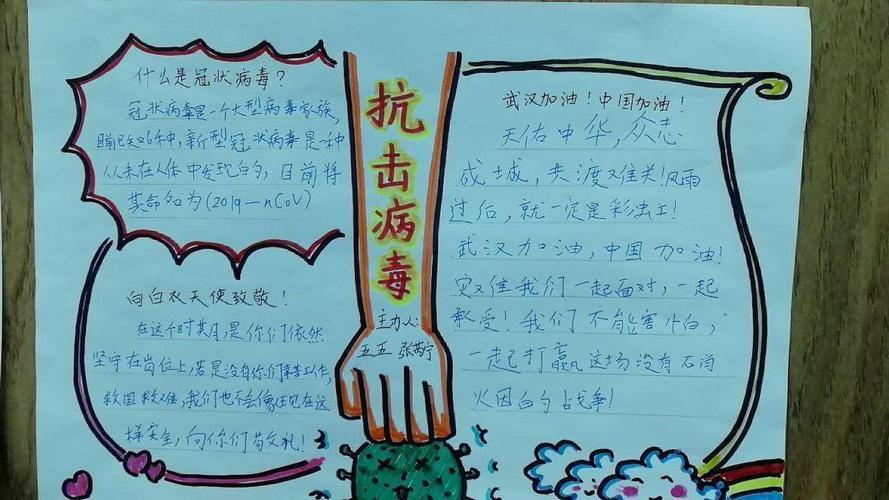 什么是冠状病毒？
冠状病毒是一个大型病毒家族，
目前已知6种，新型冠状病毒是一种
从未在人体中发现的，目前将
其命名为(2019—nCoV)
向白衣天使致敬！
在这个时期，是你们依然
坚守在岗位上，若是没有你们辛苦工作，
救国救难，我们也不会像现在这
样安全，向你们敬礼！
抗击病毒
主力人：
五五 张
武汉加油！中国加油！
天佑中华，众志
成城，共渡难关！风雨
过后，就一定是彩虹！
武汉加油，中国加油！
灾难我们一起面对，一起
承受！我们不能害怕，
一起打赢这场没有硝
火因的战争！